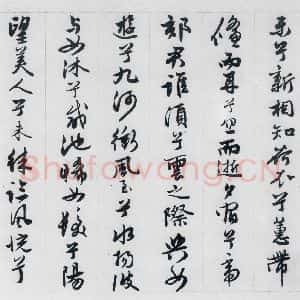 樂兮新相知荷衣兮蕙帶
儵而來兮忽而逝夕宿兮帝
郊君誰須兮雲之際與女
遊兮九河衝風至兮水揚波
與女沐兮咸池晞女髮兮陽
望美人兮未徠臨風怳兮
Shufawang.CN